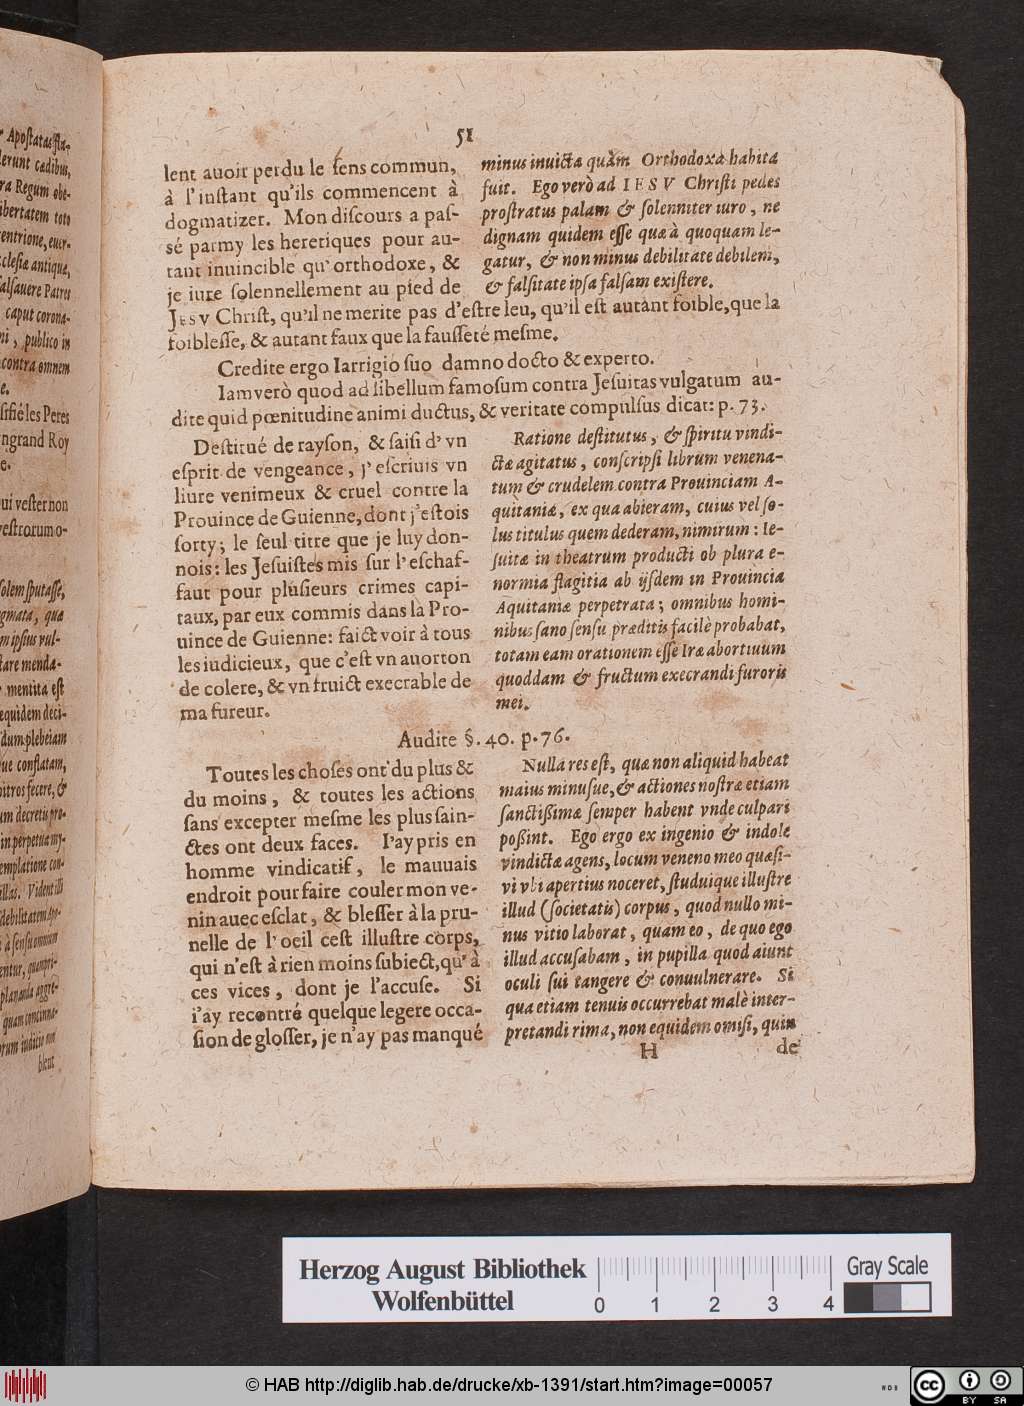 51
lent auoir perdu le ſens commun,
à l'inſtant qu'ils commencent à
dogmatizer. Mon diſcours a paſ-
sé parmy les heretiques pour au-
tant inuincible qu'orthodoxe, &
je iure ſolennellement au pied de
minus inuicta quàm Orthodoxa habita
fuit. Ego verò ad IESV Chriſti pedes
proſtratus palam & ſolenniter iuro, ne
dignam quidem eſſe quæ à quoquam le-
gatur, & non minus debilitate debilem,
& falſitate ipſa falſam exiſtere.
JESV Chriſt, qu'il ne merite pas d'eſtre leu, qu'il eſt autant foible, que la
foibleſſe, & autant faux que la fauſſeté meſme.
Credite ergo Iarrigio ſuo damno docto & experto.
Iam verò quod ad libellum famoſum contra Jeſuitas vulgatum au-
dite quid pœnitudine animi ductus, & veritate compulſus dicat: p. 73.
Deſtitué de rayſon, & ſaiſi d'vn
eſprit de vengeance, j'eſcriuis vn
liure venimeux & cruel contre la
Prouince de Guienne, dont j'eſtois
ſorty; le ſeul titre que je luy don-
nois: les Jeſuiſtes mis ſur l'eſchaf-
faut pour pluſieurs crimes capi-
taux, par eux commis dans la Pro-
uince de Guienne: faict voir à tous
les iudicieux, que c'eſt vn auorton
de colere, & vn fruict execrable de
ma fureur.
Ratione deſtitutus, & ſpiritu vindi-
ctæ agitatus, conſcripſi librum venena-
tum & crudelem contra Prouinciam A-
quitaniæ, ex qua abieram, cuius vel ſo-
lus titulus quem dederam, nimirum: Ie-
ſuitæ in theatrum producti ob plura e-
normia flagitia ab ijſdem in Prouincia
Aquitaniæ perpetrata; omnibus homi-
nibus ſano ſenſu præditis facilè probabat,
totam eam orationem eſſe Iræ abortiuum
quoddam & fructum execrandi furoris
mei.
Audite §. 40. p. 76.
Toutes les choſes ont du plus &
du moins, & toutes les actions
ſans excepter meſme les plus ſain-
ctes ont deux faces. I'ay pris en
homme vindicatif, le mauuais
endroit pour faire couler mon ve-
nin auec eſclat, & bleſſer à la pru-
nelle de l'oeil ceſt illuſtre corps,
qui n'eſt à rien moins ſubiect, qu'à
ces vices, dont je l'accuſe. Si
i'ay recontré quelque legere occa-
ſion de gloſſer, je n'ay pas manqué
Nulla res eſt, quæ non aliquid habeat
maius minuſue, & actiones noſtræ etiam
ſanctißimæ ſemper habent vnde culpari
poßint. Ego ergo ex ingenio & indole
vindictæ agens, locum veneno meo quæſi-
vi vbi apertius noceret, ſtuduique illuſtre
illud (ſocietatis) corpus, quod nullo mi-
nus vitio laborat, quam eo, de quo ego
illud accuſabam, in pupilla quod aiunt
oculi ſui tangere & conuulnerare. Si
qua etiam tenuis occurrebat malè inter-
pretandi rima, non equidem omiſi, quin
H
de
Herzog August Bibliothek
Wolfenbüttel
0 1 2 3 4
Gray Scale
© HAB http://diglib.hab.de/drucke/xb-1391/start.htm?image=00057
cc BY SA